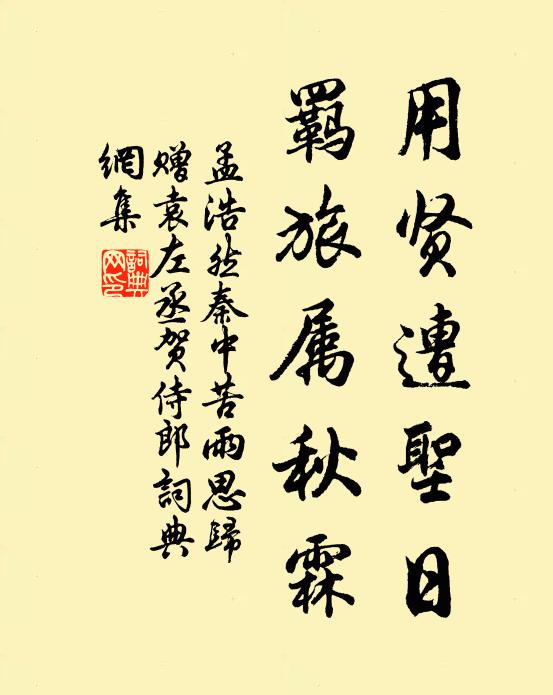 用贤遭聖日
羁旅属秋霖
孟浩然秦中苦雨思歸
赠袁左丞贺侍郎詞典
網集
詞典网印